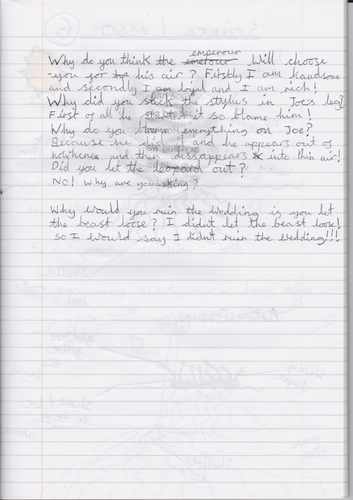 emperour
Why do you think the emetour will choose
you for the his air? Firstly I am handsome
and secondly I am loyal and I am rich!
Why did you stick the stylus in Joes leg?
First of all he started it so blame him!
Why do you blame everything on Joe?
Because he did it and he appears out of
nowheres and then dissappears into thin air!
Did you let the leopard out?
No! Why are you asking?
Why would you ruin the wedding is you let
the beast loose? I didnt let the beast loose!
so I would say I didnt ruin the wedding!!!